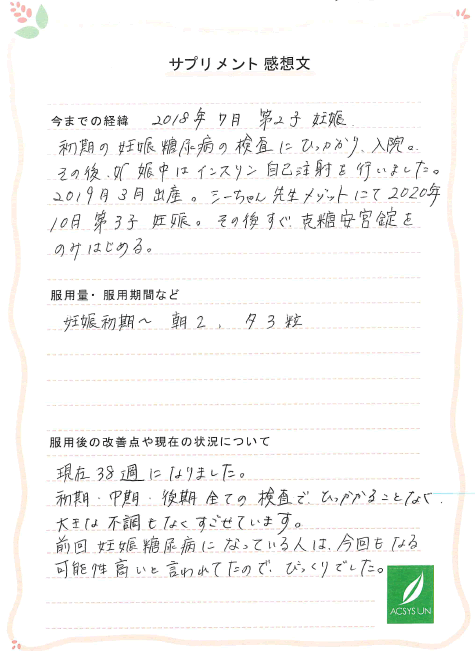 サプリメント感想文
今までの経緯 2018年7月 第2子 妊娠
初期の妊娠糖尿病の検査にひっかかり、入院。
その後、妊娠中はインスリン自己注射を行いました。
2019月3月出産。シーちゃん先生メゾットにて2020年
10月 第3子 妊娠。その後すぐ、克糖安宮錠を
のみはじめる。
服用量・服用期間など
妊娠初期〜 朝2、夕3粒
服用後の改善点や現在の状況について
現在38週になりました。
初期・中期・後期全ての検査で、ひっかかることなく、
大きな不調もなくすごせています。
前回妊娠糖尿病になっている人は、今回もなる
可能性高いと言われてたので、びっくりでした。
ACSYS UN